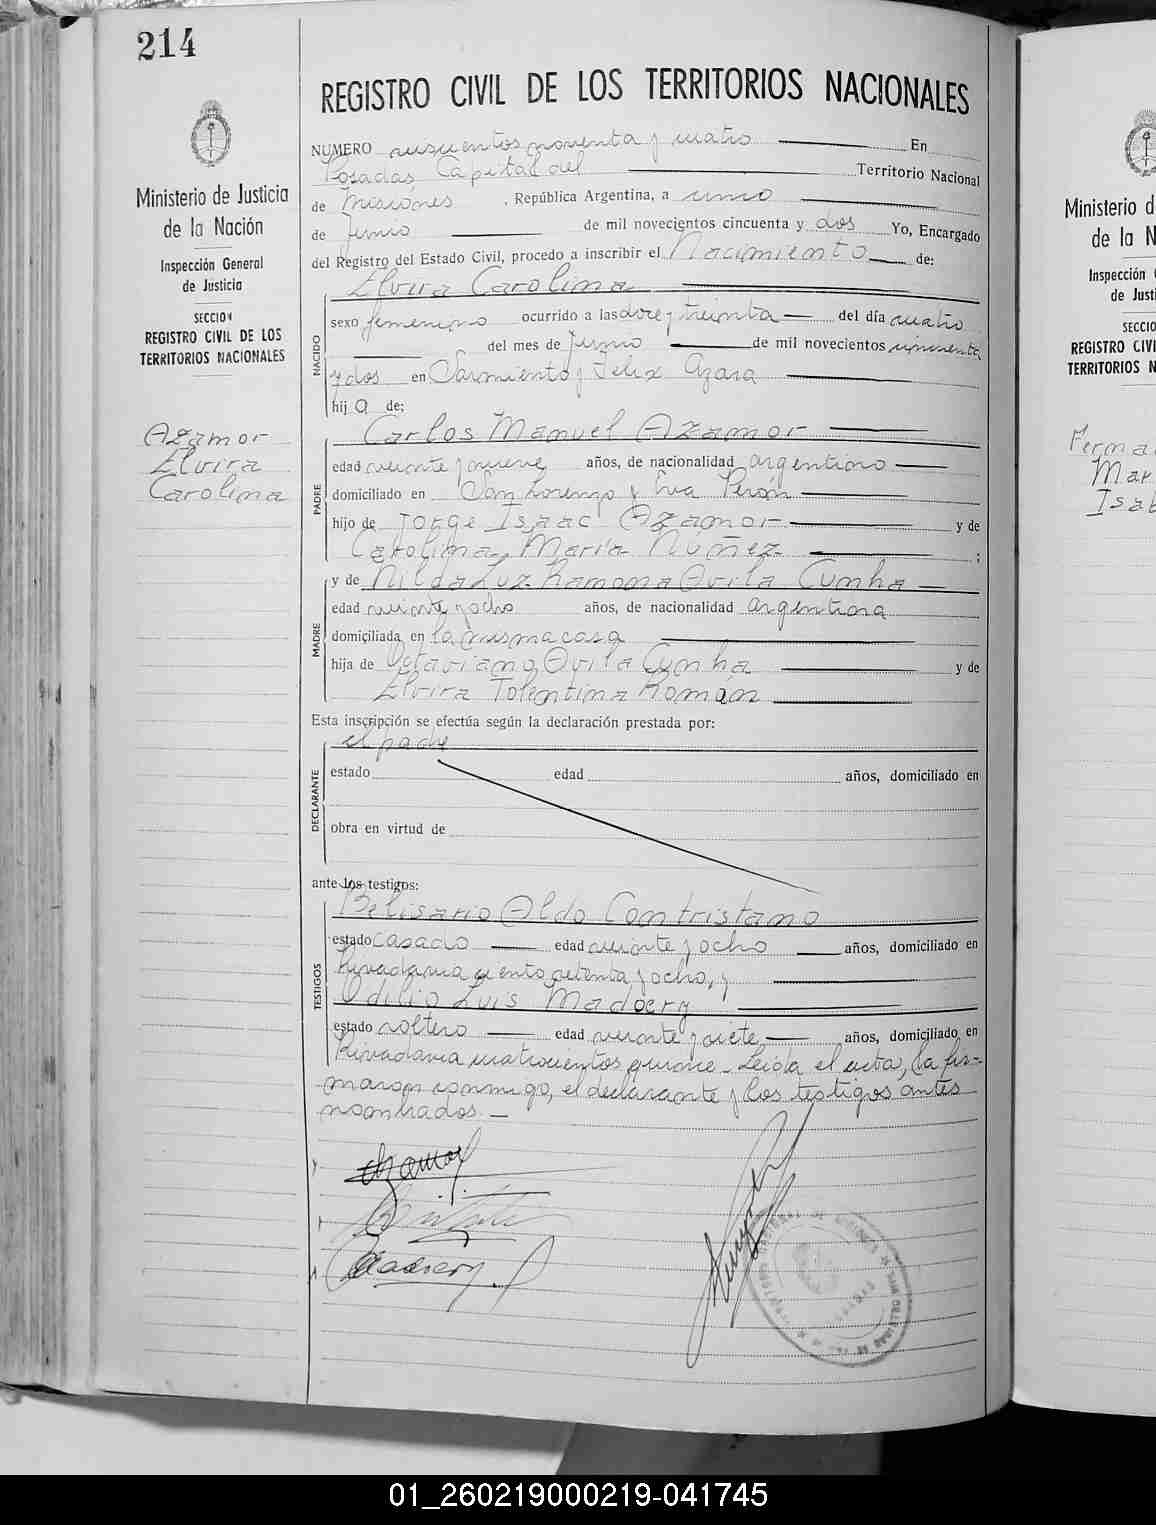 214
REGISTRO CIVIL DE LOS TERRITORIOS NACIONALES
Ministerio de Justicia
de la Nación
Inspección General
de Justicia
SECCION
REGISTRO CIVIL DE LOS
TERRITORIOS NACIONALES
Azamor
Elvira
Carolina
NUMERO seiscientos noventa y cuatro En
Posadas Capital del Territorio Nacional
de Misiones, República Argentina, a cinco
de Junio de mil novecientos cincuenta y dos Yo, Encargado
del Registro del Estado Civil, procedo a inscribir el Nacimiento de:
NACIDO
Elvira Carolina
sexo femenino ocurrido a las doce y treinta del día cuatro
del mes de Junio de mil novecientos cincuenta
y dos en Sarmiento y Felix Azara
hij a de:
PADRE
Carlos Manuel Azamor
edad veinte y nueve años, de nacionalidad argentino
domiciliado en San Lorenzo y Eva Perón
hijo de Jorge Isaac Azamor y de
Carolina María Núñez ;
MADRE
y de Nilda Luz Ramona Avila Cunha
edad veinte y ocho años, de nacionalidad argentina
domiciliada en la misma casa
hija de Octaviano Avila Cunha y de
Elvira Tolentina Román
Esta inscripción se efectúa según la declaración prestada por:
DECLARANTE
el padre
estado edad años, domiciliado en
obra en virtud de
ante los testigos:
TESTIGOS
Belisario Aldo Contristano
estado casado edad veinte y ocho años, domiciliado en
Rivadavia ciento setenta y ocho, y
Odilio Luis Madoery
estado soltero edad veinte y siete años, domiciliado en
Rivadavia cuatrocientos quince - Leida el acta, la fir-
maron conmigo, el declarante y los testigos antes
nombrados. -
Azamor
Madoery
Ministerio d
de la N
Inspección
de Justi
SECCIO
REGISTRO CIVI
TERRITORIOS N
Ferma
Mar
Isab
01_260219000219-041745